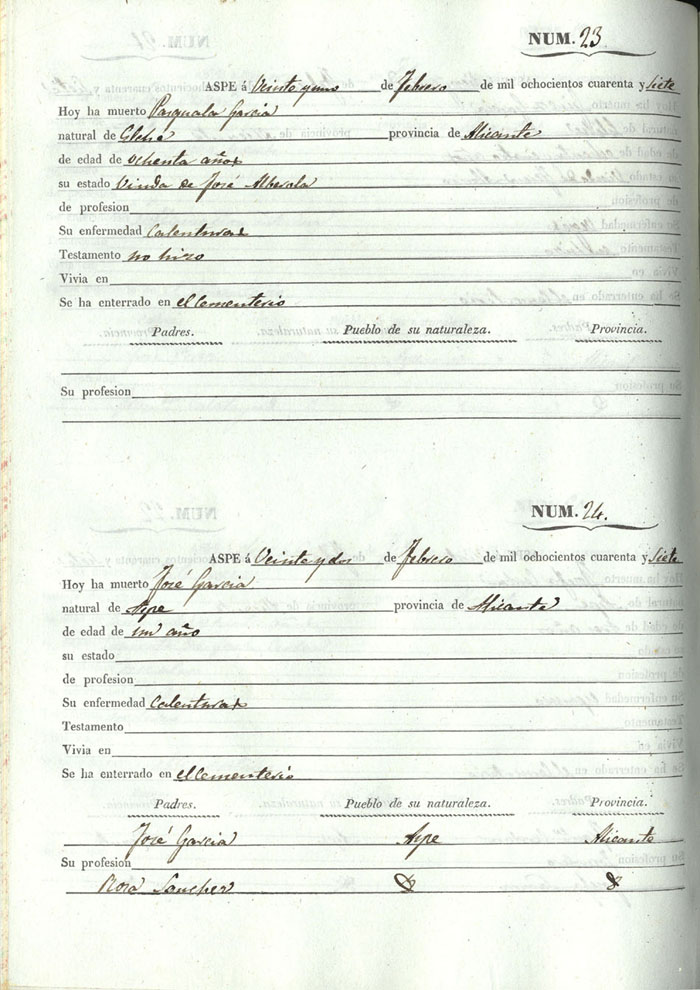 NUM. 23
ASPE á Veinte y uno de Febrero de mil ochocientos cuarenta y Siete
Hoy ha muerto Pasquala Garcia
natural de Elche provincia de Alicante
de edad de ochenta años
su estado Viuda de José Alberola
de profesion
Su enfermedad Calenturas
Testamento no hizo
Vivia en
Se ha enterrado en el Cementerio
Padres. Pueblo de su naturaleza. Provincia.
Su profesion
NUM. 24.
ASPE á Veinte y dos de Febrero de mil ochocientos cuarenta y Siete
Hoy ha muerto José Garcia
natural de Aspe provincia de Alicante
de edad de un año
su estado
de profesion
Su enfermedad Calenturas
Testamento
Vivia en
Se ha enterrado en el Cementerio
Padres. Pueblo de su naturaleza. Provincia.
José Garcia Aspe Alicante
Su profesion
Rosa Sanchez